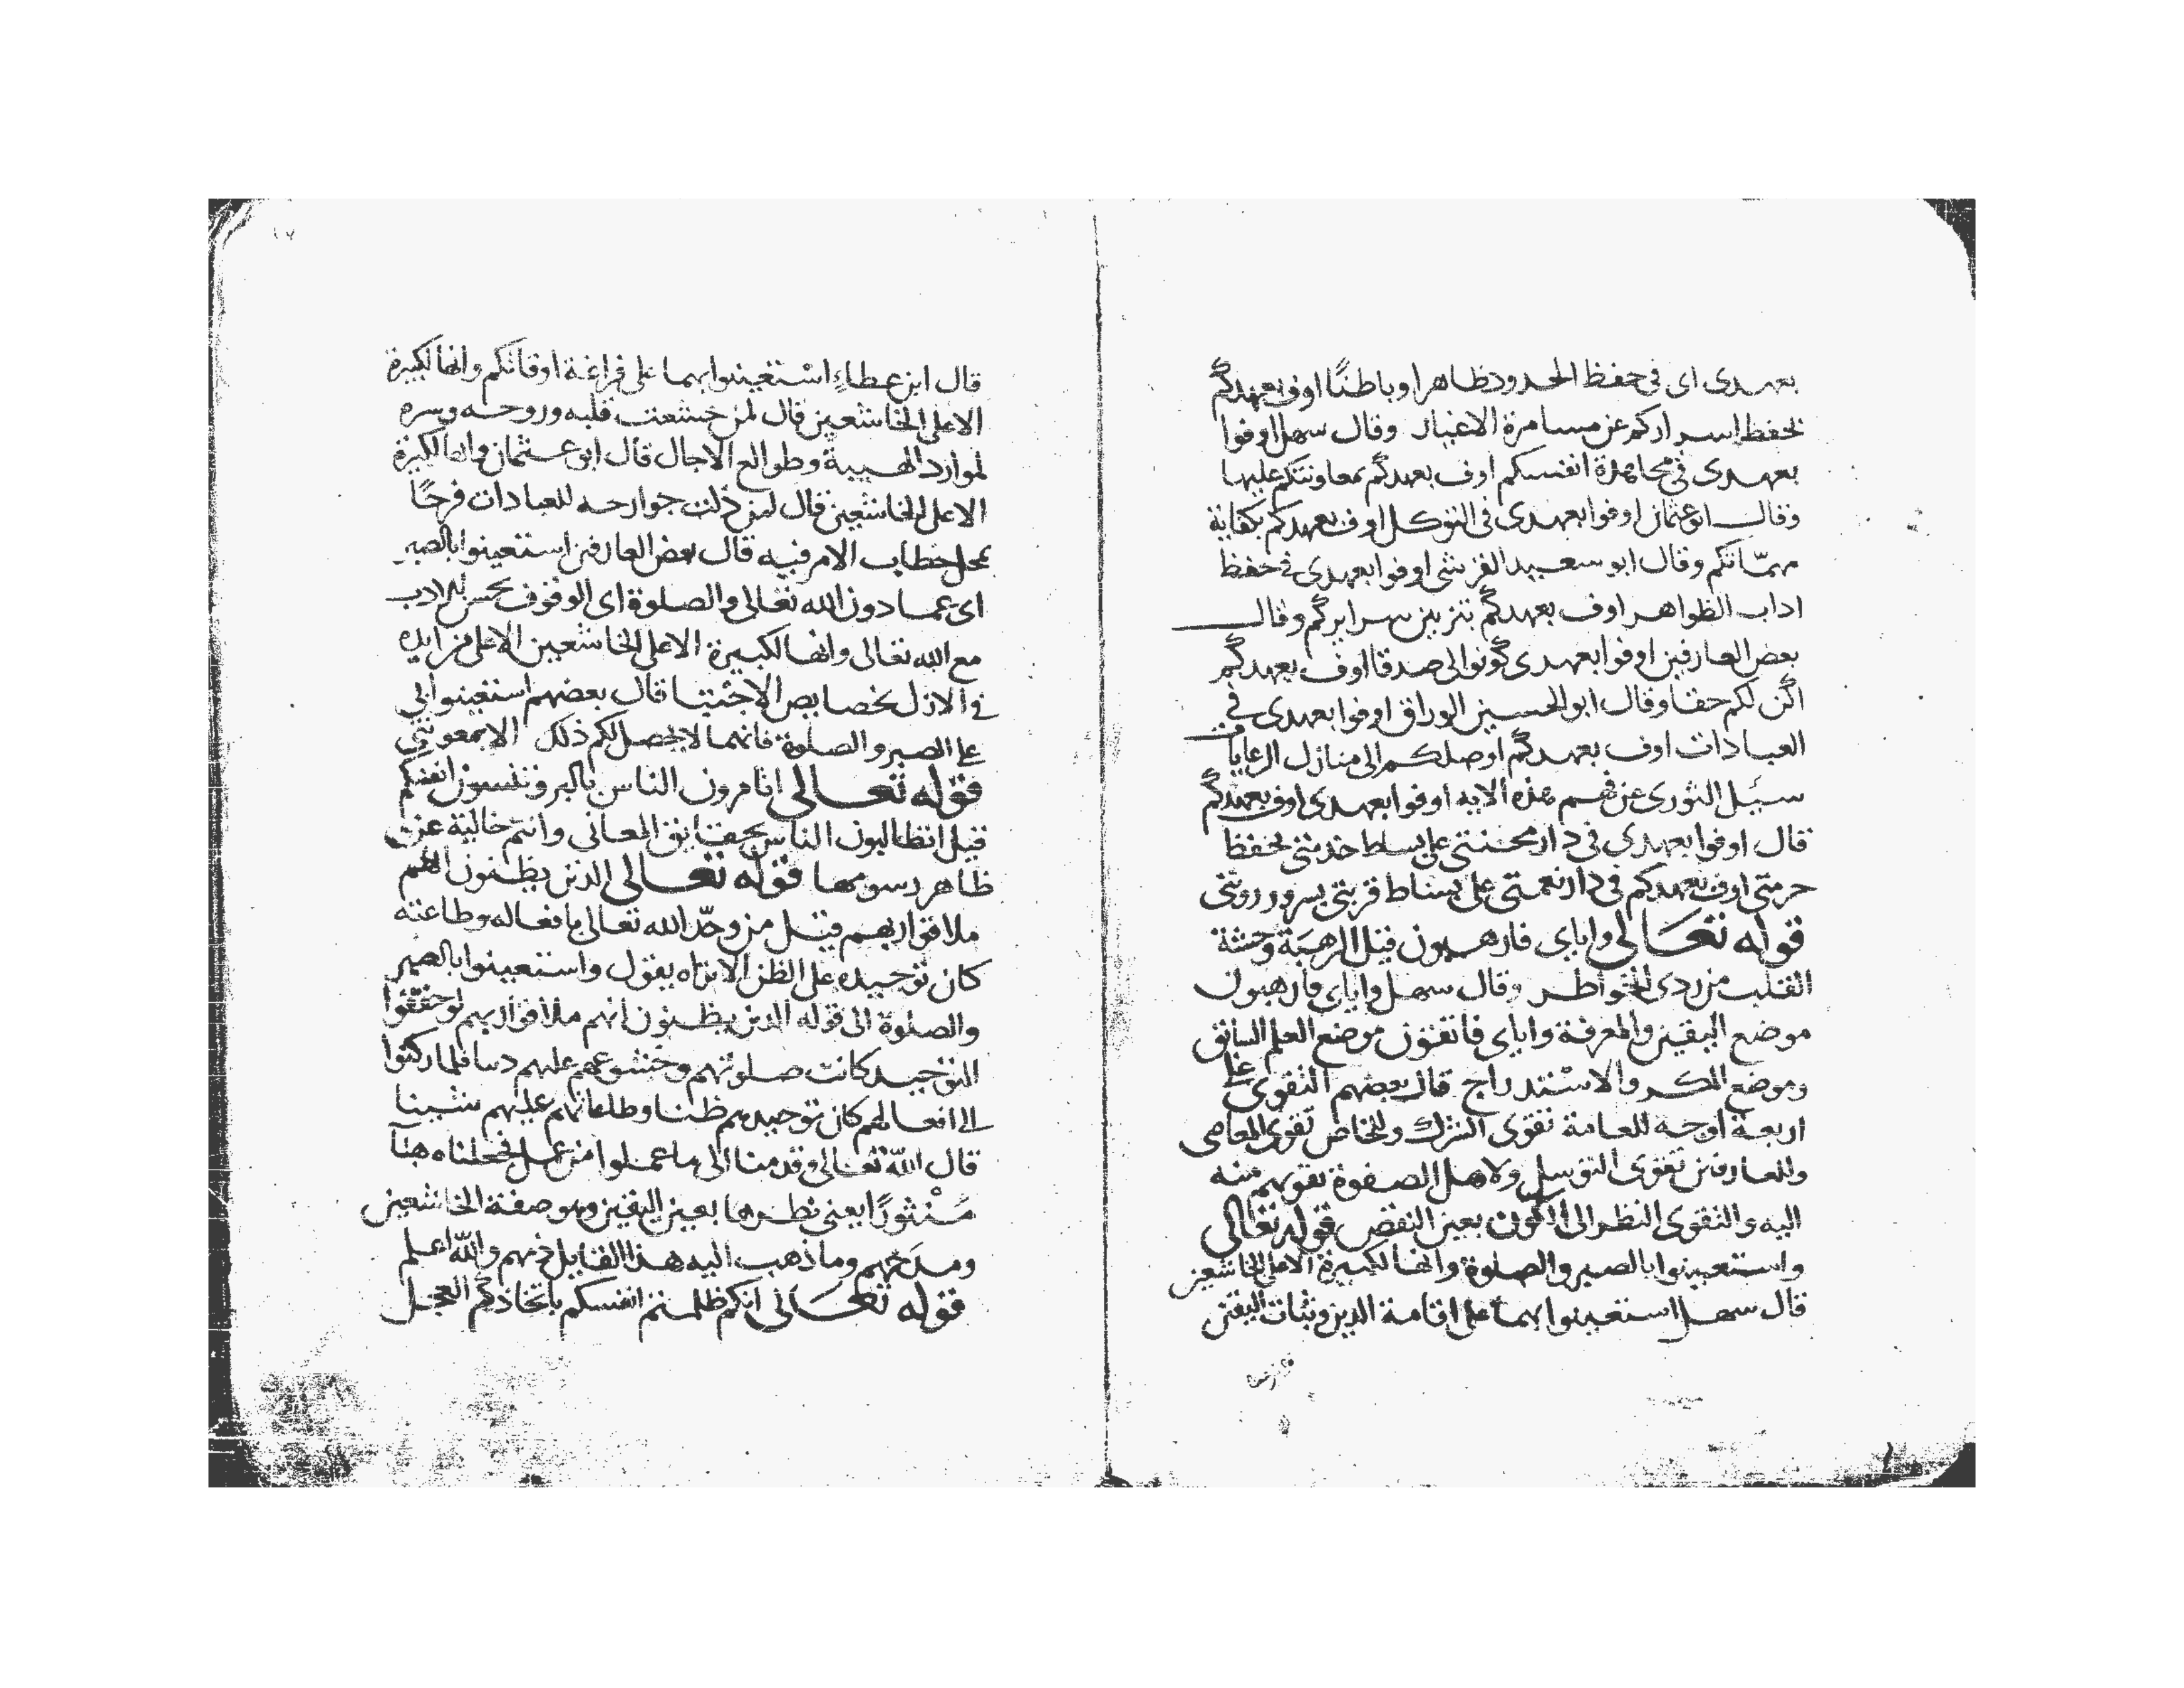 بعهدى اى فى حفظ الحدود ظاهرا وباطنًا اوف بعهدكم
لحفظ اسراركم عن مسامرة الاغيار وقال سهل اوفوا
بعهدى فى مجاهدة انفسكم اوف بعهدكم بمعاونتكم عليها
وقال ابو عثمان اوفوا بعهدى فى التوكل اوف بعهدكم بكفاية
مهمّاتكم وقال ابو سعيد القرشى اوفوا بعهدى فى حفظ
اداب الظواهر اوف بعهدكم بتزيين سرايركم وقال
بعض العارفين اوفوا بعهدى كونوا لى صدقا اوف بعهدكم
اكن لكم حقا وقال ابو الحسين الوراق اوفوا بعهدى فى
العبادات اوف بعهدكم اوصلكم الى منازل الرعايات
سيل الثورى عن فهم هذه الايه اوفوا بعهدى اوف بعهدكم
قال اوفوا بعهدى فى دار محنتى على بساط خدمتى بحفظ
حرمتى اوف بعهدكم فى دار نعمتى على بساط قربتى بسرور رويتى
قوله تعالى واياى فارهبون قيل الرهبة وحشة
القلب من ردى الخواطر وقال سهل واياى فارهبون
موضع اليقين والمعرفة واياى فاتقون موضع العلم السابق
وموضع المكر والاستدراج قال بعضهم التقوى على
اربعة اوجه للعامة تقوى الشرك وللخاص تقوى المعاصى
وللعارفين تقوى التوسل ولاهل الصفوة تقويهم منه
اليه والتقوى النظر الى الكون بعين النقص قوله تعالى
واستعينوا بالصبر والصلوة وانها لكبيرة الا على الخاشعين
قال سهل استعينوا بهما على اقامة الدين وثبات اليقين
قال ابن عطاء استعينوا بهما على فراغة اوقاتكم وانها لكبيرة
الا على الخاشعين قال لمن خشعت قلبه وروحه وسره
لموارد الهيبة وطوالع الاجال قال ابو عثمان وانها لكبيرة
الا على الخاشعين قال لمن ذلت جوارحه للعبادات فرحًا
بمحل خطاب الامر فيه قال بعض العارفين استعينوا بالصبر
اى عما دون الله تعالى والصلوة اى الوقوف بحسن الادب
مع الله تعالى وانها لكبيرة الا على الخاشعين الا على من ايده
فى الازل بخصايص الاجتبا قال بعضهم استعينوا بى
على الصبر والصلوة فانهما لا يحصل لكم ذلك الا بمعونتى
قوله تعالى اتامرون الناس بالبر وتنسون انفسكم
قيل اتطالبون الناس بحقايق المعانى وانتم خالية عن
ظاهر رسومها قوله تعالى الذين يظنون انهم
ملاقوا ربهم قيل من وحّد الله تعالى بافعاله وطاعته
كان توحيده على الظن الا تراه يقول واستعينوا بالصبر
والصلوة الى قوله الذين يظنون انهم ملاقوا ربهم لو حققوا
التوحيد كانت صلوتهم وخشوعهم عليهم فلما ركنوا
الى افعالهم كان توحيدهم ظنا وطاعاتهم عليهم شينا
قال الله تعالى وقدمنا الى ما عملوا من عمل فجعلناه هبآ
مَنْثورًا يعنى نظرها بعين اليقين وهو صفة الخاشعين
ومدحهم وما ذهب اليه هذا القايل ذمهم والله اعلم
قوله تعالى انكم ظلمتم انفسكم باتخاذكم العجل